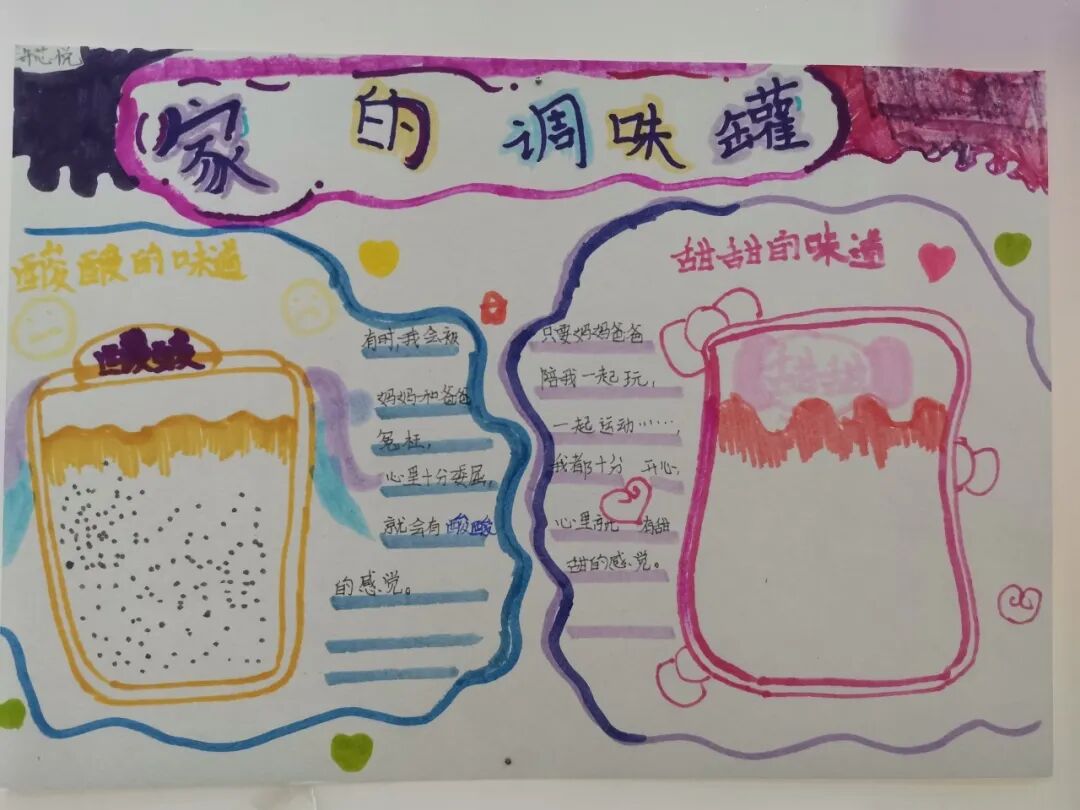 芯悦
家的调味罐
酸酸的味道
酸酸
有时,我会被
妈妈和爸爸
冤枉,
心里十分委屈,
就会有酸酸
的感觉。
甜甜的味道
甜甜
只要妈妈爸爸
陪我一起玩,
一起运动……,
我都十分开心,
心里就有甜
甜的感觉。